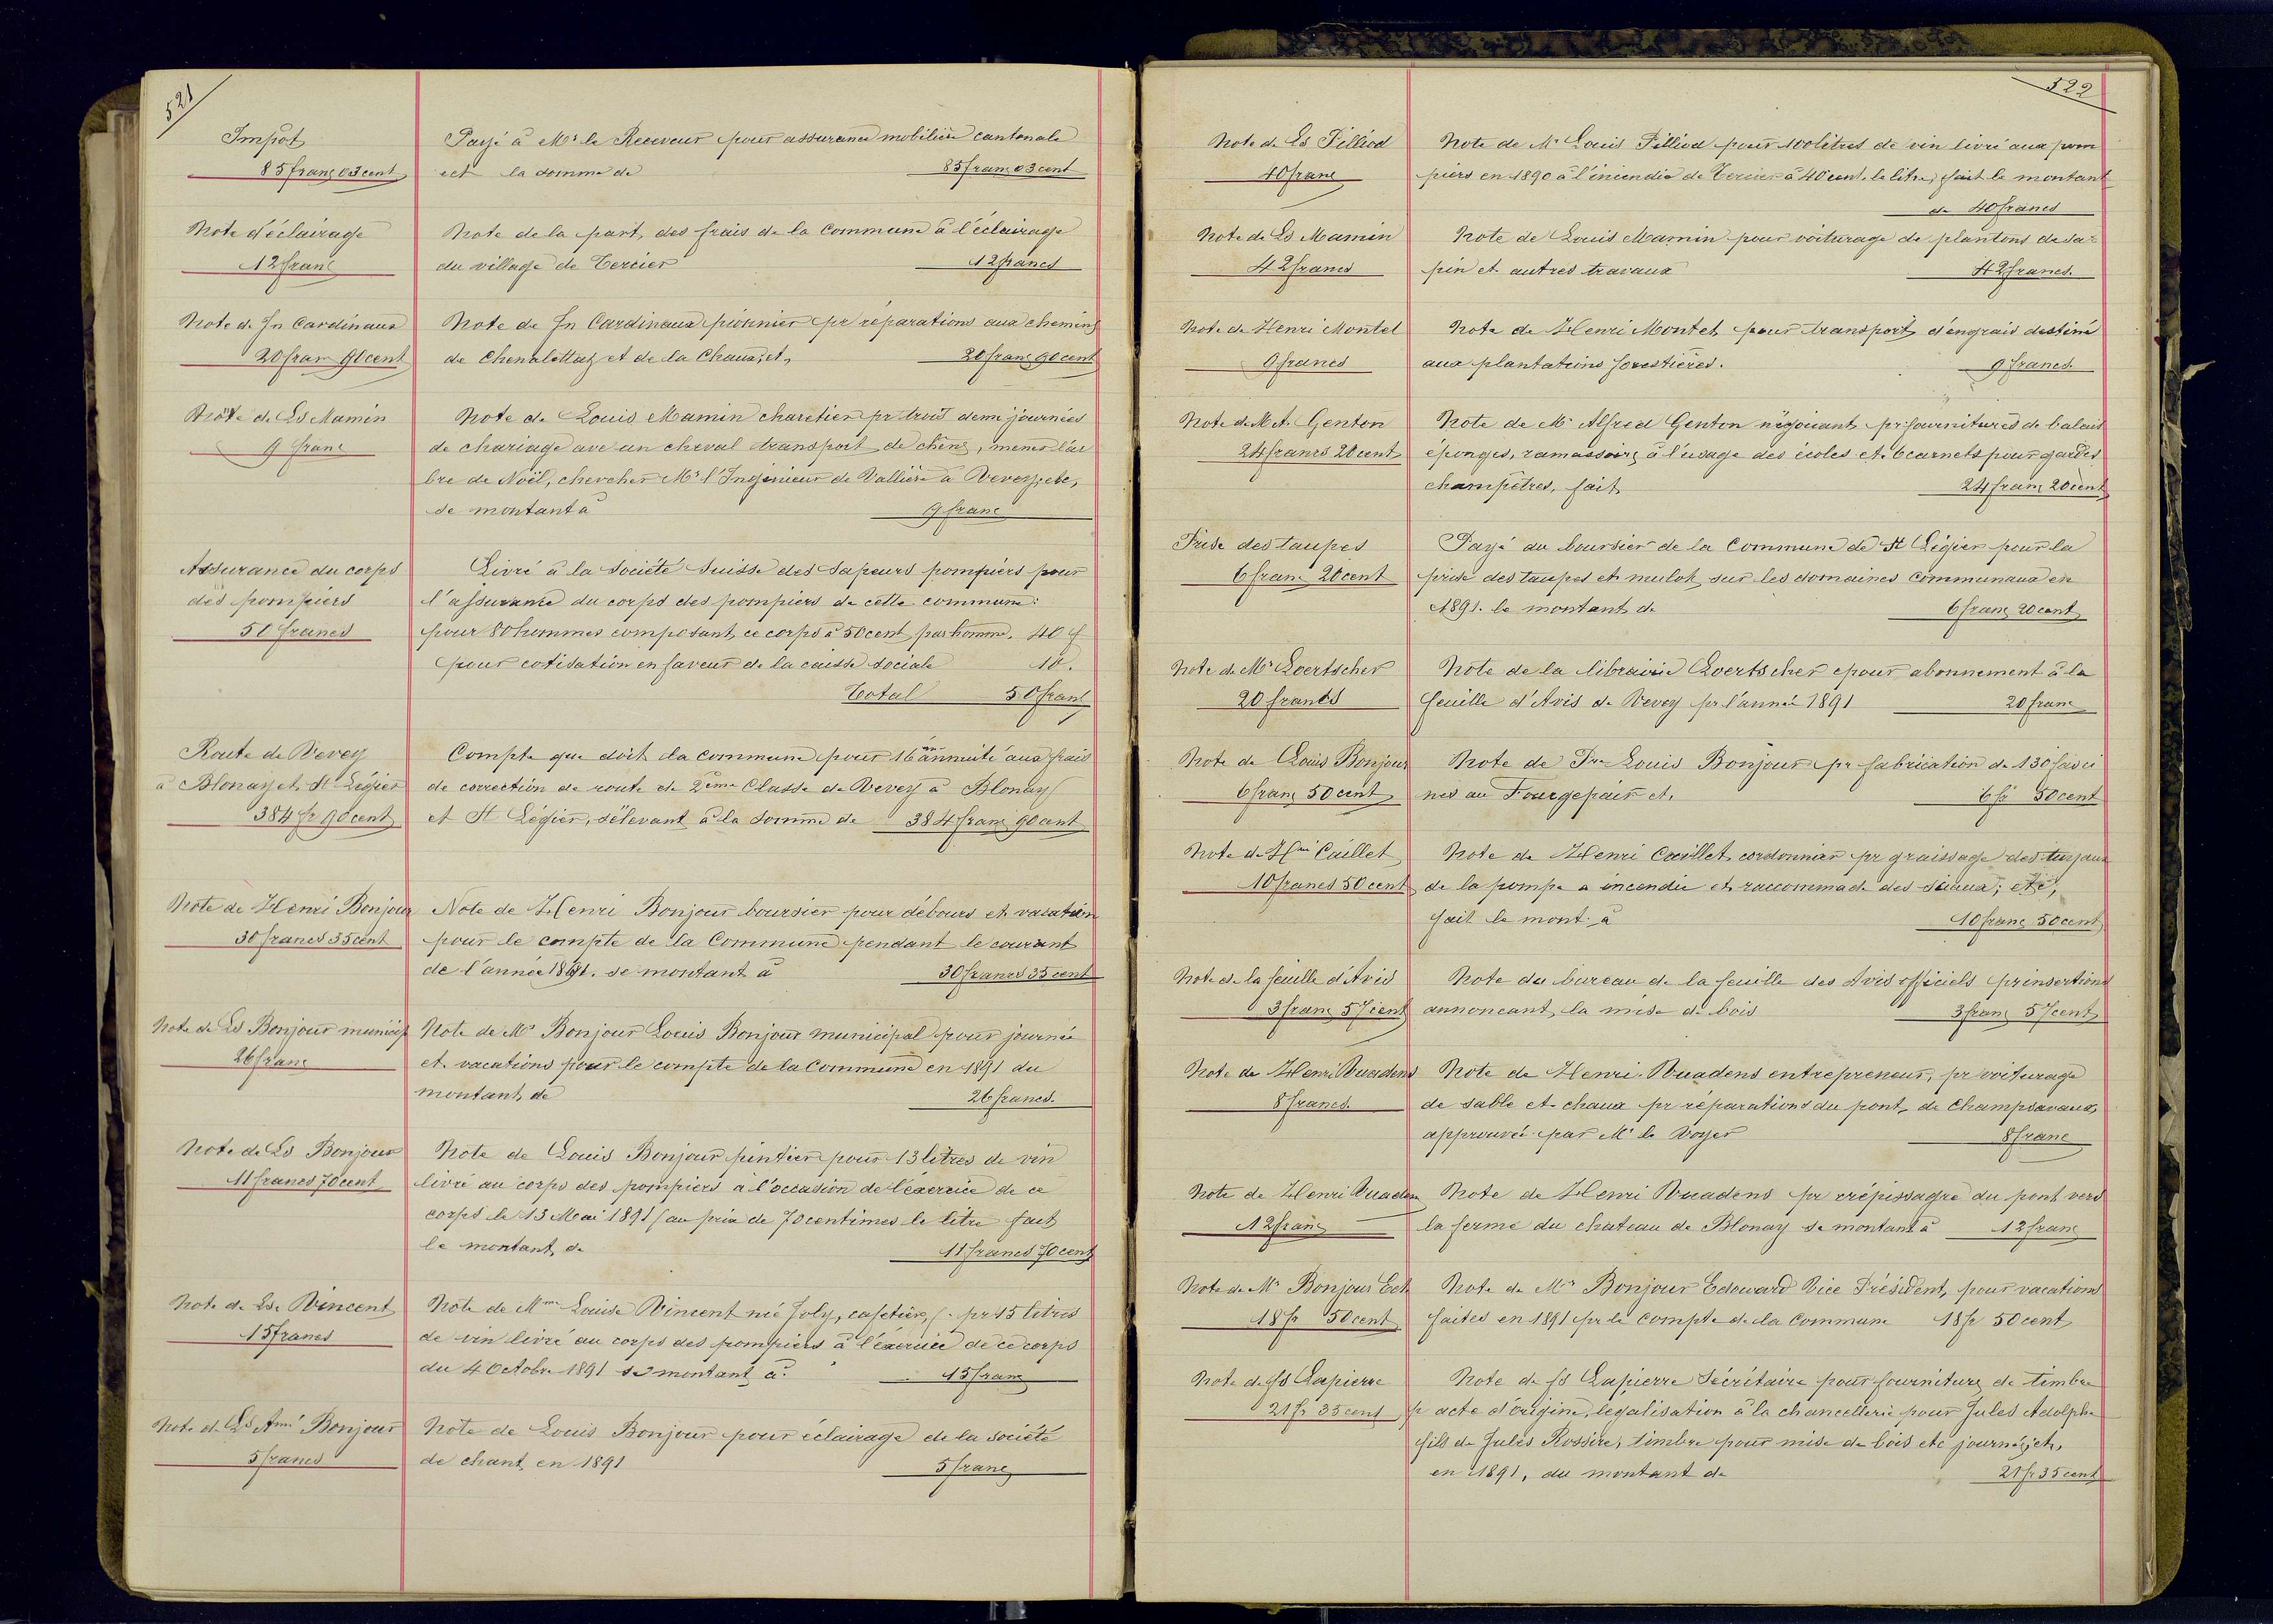 521
Impôt
85 franc 03 cent
Payé à Mr le Receveur pour assurance mobilière cantonale
ect la somme de 85 franc 03 cent
Note d'éclairage
12 franc
Note de la part des frais de la Commune à l'éclairage
du village de Tercier 12 francs
Note de Jn Cardinaux
20 franc 90 cent
Note de Jn Cardinaux pionnier pr réparations aux chemins
de Chenalettaz et de la Chauxjet, 20 franc 90 cent
Note de Ls Mamin
9 franc
Note de Louis Mamin charetier pr trois demi journées
de chariage ave un cheval transport de chêne, mener l'ar
bre de Noël, chercher Mr l'Ingénieur de Vallière à Vevey, etc,
se montant à 9 franc
Assurance du corps
des pompiers
50 francs
Livré à la Société Suisse des Sapeurs pompiers pour
l'assurance du corps des pompiers de cette commune:
pour 80 hommes composant ce corps à 50 cent par homme. 40 f
pour cotisation en faveur de la caisse sociale 10.
Total 50 franc
Route de Vevey
à Blonay et St Légier
384 fr 90 cent
Compte que doit la commune pour 16 annuité aux frais
de correction de route de 2ème Classe de Vevey à Blonay
et St Légier, s'élevant à la somme de 384 franc 90 cent
Note de Henri Bonjour
30 francs 35 cent
Note de Henri Bonjour boursier pour débours et vacation
pour le compte de la Commune pendant le courant
de l'année 1891. se montant à 30 francs 35 cent
Note de Ls Bonjour municip
26 franc
Note de Mr Bonjour Louis Bonjour municipal pour journée
et vacations pour le compte de la Commune en 1891 du
montant de 26 francs.
Note de Ls Bonjour
11 francs 70 cent
Note de Louis Bonjour pintier pour 13 litres de vin
livré au corps des pompiers à l'occasion de l'éxercice de ce
corps le 13 Mai 1891 (au prix de 70 centimes le litre fait
le montant de 11 francs 70 cent
Note de Lse Vincent
15 francs
Note de Mme Louise Vincent née Joly, cafetière, pr 15 litres
de vin livré au corps des pompiers à l'éxercice de ce corps
du 4 Octobre 1891 se montant à. 15 franc
Note de Ls Ami Bonjour
5 francs
Note de Louis Bonjour pour éclairage de la société
de chant en 1891 5 franc
522
Note de Ls Filliod
40 franc
Note de Mr Louis Filliod pour 100 litres de vin livré aux pom
piers en 1890 à l'incendie de Tercier à 40 cent. le litre, fait le montant
de 40 francs
Note de Ls Mamin
42 francs
Note de Louis Mamin pour voiturage de plantons de sa-
pin et autres travaux 42 francs.
Note de Henri Montet
9 francs
Note de Henri Montet pour transport d'engrais destiné
aux plantations forestières. 9 francs.
Note de M A. Genton
24 francs 20 cent
Note de Mr Alfred Genton négociant pr fournitures de balais
éponges, ramassoirs à l'usage des écoles et 6 carnets pour gardes
champêtres, fait 24 franc 20 cent
Prise des taupes
6 franc 20 cent
Payé au boursier de la Commune de St Légier pour la
prise des taupes et mulots sur les domaines communaux en
1891. le montant de 6 franc 20 cent
Note de Mr Loertscher
20 francs
Note de la librairie Loertscher pour abonnement à la
feuille d'Avis de Vevey pr l'année 1891 20 franc
Note de Louis Bonjour
6 franc 50 cent
Note de Louis Bonjour pr fabrication de 130 fasci
nes au 6 fr 50 cent
Note de Hri Caillet
10 francs 50 cent
Note de Henri Caillet cordonnier pr graissage des tuyaux
de la pompe a incendie et raccommode des sceaux, etc,
fait le mont. à 10 franc 50 cent
Note de la feuille d'Avis
3 franc 57 cent
Note du bureau de la feuille des Avis officiels pr insertions
annoncant la mise de bois 3 franc 57 cent
Note de Henri Vuadens
8 francs.
Note de Henri Vuadens entrepreneur, pr voiturage
de sable et chaux pr réparations du pont de Champsavaux,
approuvé par Mr le Voyer 8 franc
Note de Henri Vuaden
12 franc
Note de Henri Vuadens pr crépissagre du pont vers
la ferme du chateau de Blonay se montant à 12 franc
Note de Mr Bonjour Ed
18 fr 50 cent
Note de Mr Bonjour Edouard Vice Président, pour vacations
faites en 1891 pr le compte de la Commune 18 fr 50 cent
Note de fs Lapierre
21 fr 35 cent
Note de fs Lapierre Sécrétaire pour fournitures de timbre
p acte d'origine, légalisation à la chancellerie pour Jules Adolphe
fils de Jules Rossire, timbre pour mise de bois etc
en 1891, du montant de 21 fr 35 cent